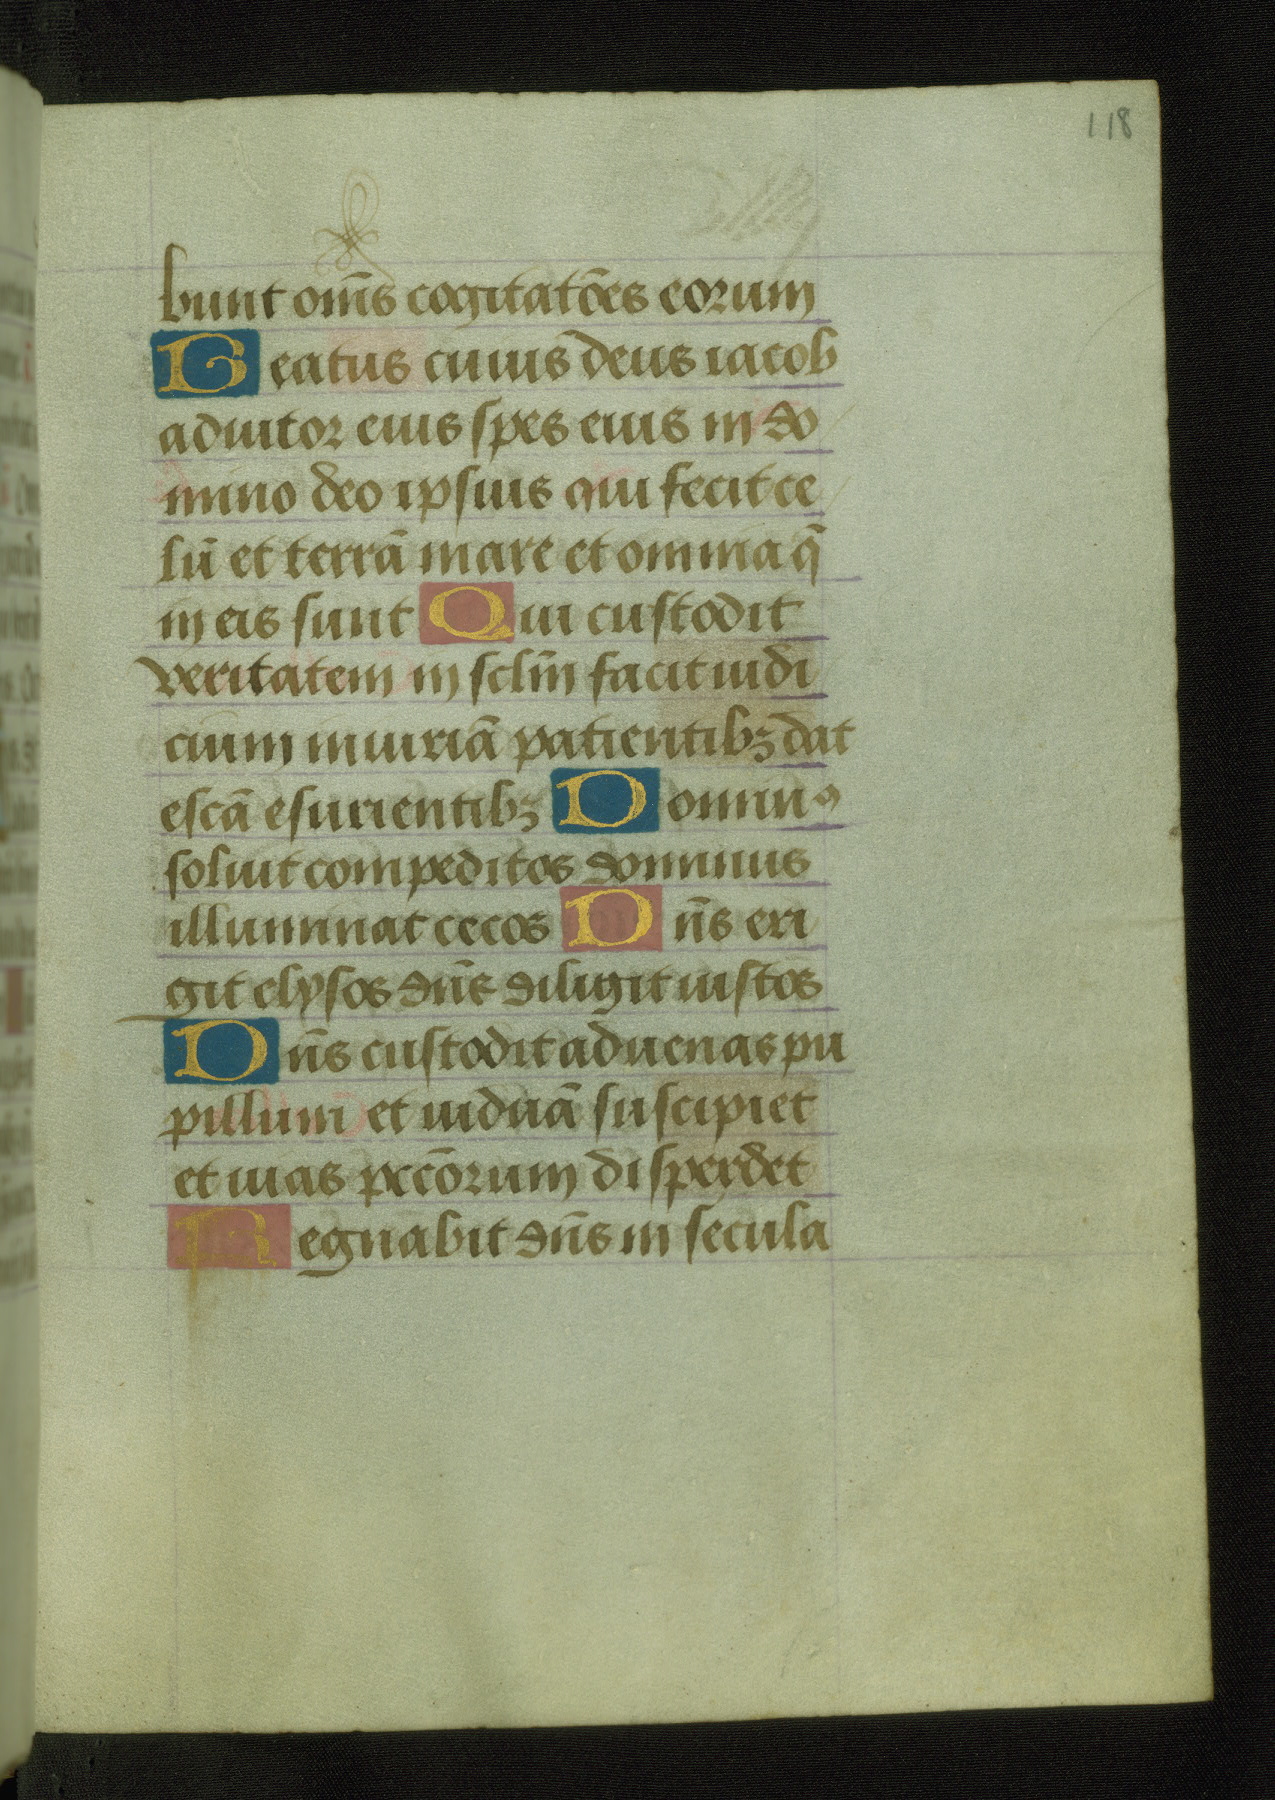 118
bunt om̄s cogitatōes eorum
Beatus cuius deus iacob
adiutor eius spes eius in do
mino deo ipsius qui fecit ce
lū et terrā mare et omnia q̄
in eis sunt Qui custodit
veritatem in sclm̄ facit iudi
cium iniuriā patientibꝫ dat
escā esurientibꝫ Dominꝰ
soluit compeditos dominus
illuminat cecos Dn̄s eri
git elysos dn̄s diligit iustos
Dn̄s custodit aduenas pu
pillum et viduā suscipiet
et uias pec̄orum disperdet
Regnabit dn̄s in secula